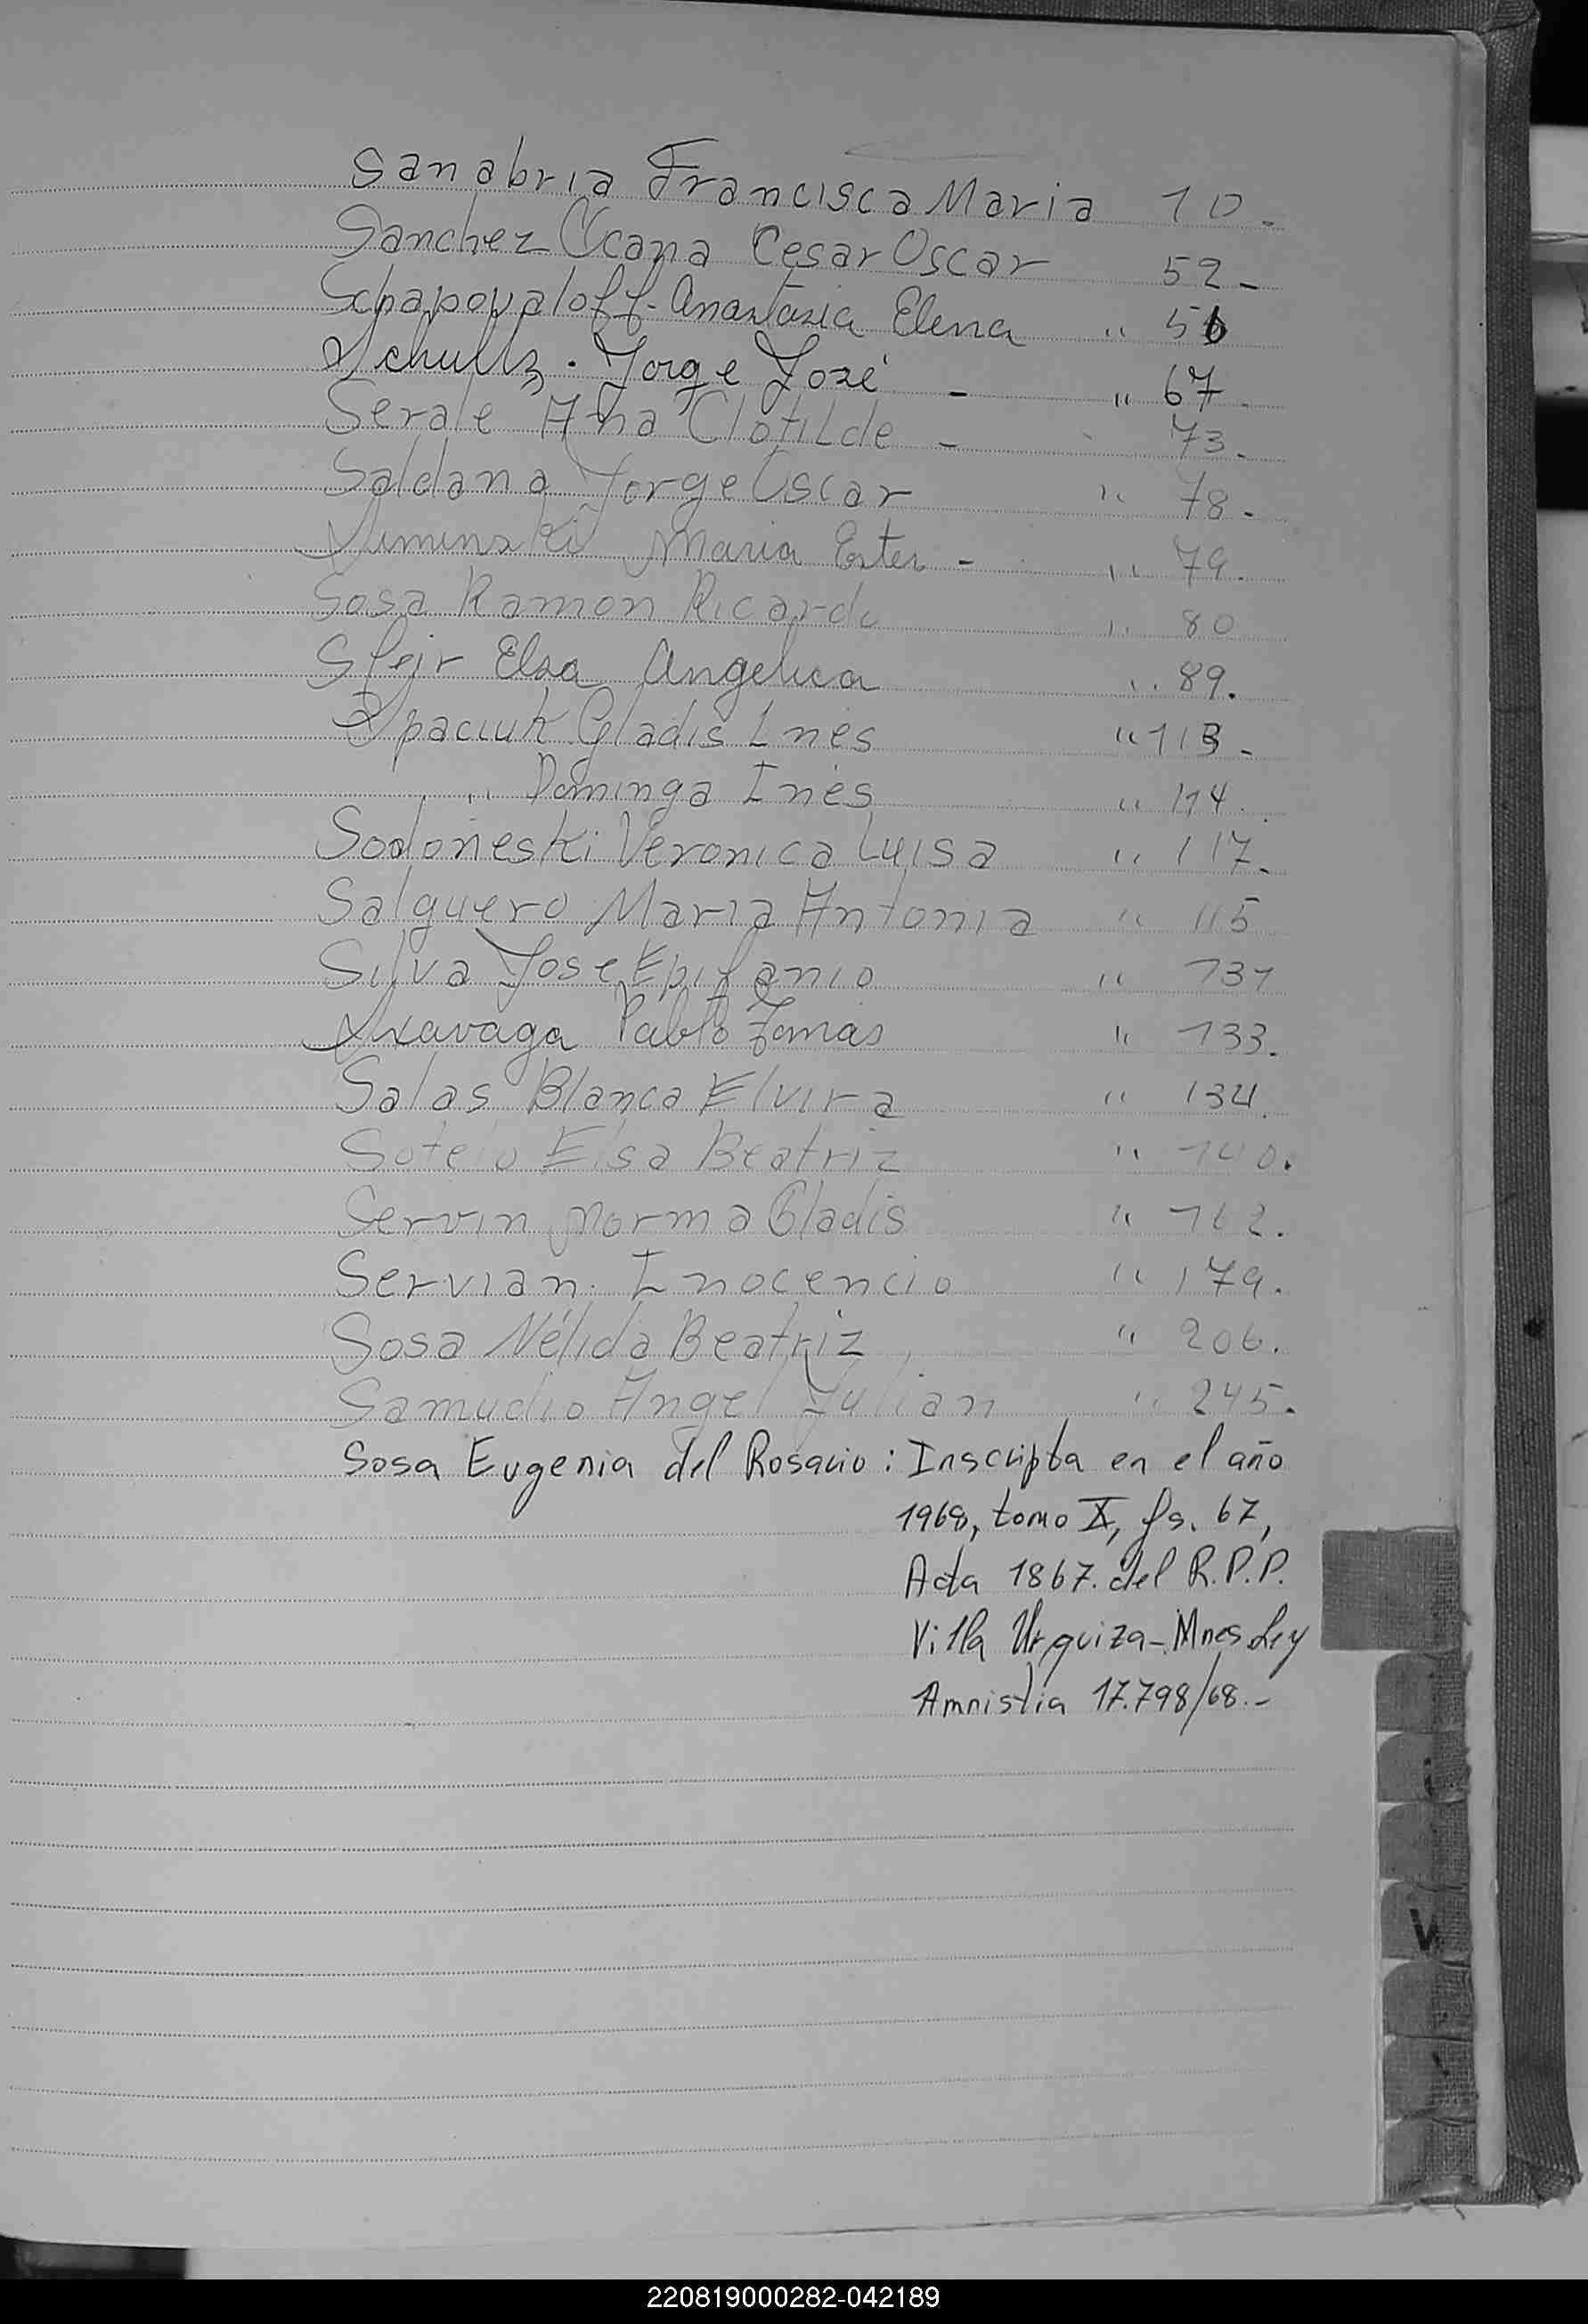 Sanabria Francisca Maria 10-
Sanchez Ocana Cesar Oscar 52-
Schapovaloff- Anastasia Elena " 56
Schultz. Jorge José - " 67.
Serale Ana Clotilde - 73.
Saldana Jorge Oscar " 78-
Siminski Maria Ester - " 79.
Sosa Ramon Ricardo " 80
Sfejr Elsa Angelica " 89.
Spaciuk Gladis Ines " 113-
" Dominga Ines " 114.
Sodoneski Veronica Luisa " 117-
Salguero Maria Antonia " 115
Silva Jose Epifanio " 131
Skavaga Pablo Tomas " 133.
Salas Blanca Elvira " 134.
Sotelo Elsa Beatriz " 140.
Servin Norma Gladis " 162.
Servian. Inocencio " 179.
Sosa Nélida Beatriz " 206.
Samudio Angel Julian " 245.
Sosa Eugenia del Rosario: Inscripta en el año
1968, tomo X, fs. 67,
Acta 1867. del R.P.P.
Villa Urquiza-Mnes Ley
Amnistia 17.798/68.-
V
220819000282-042189